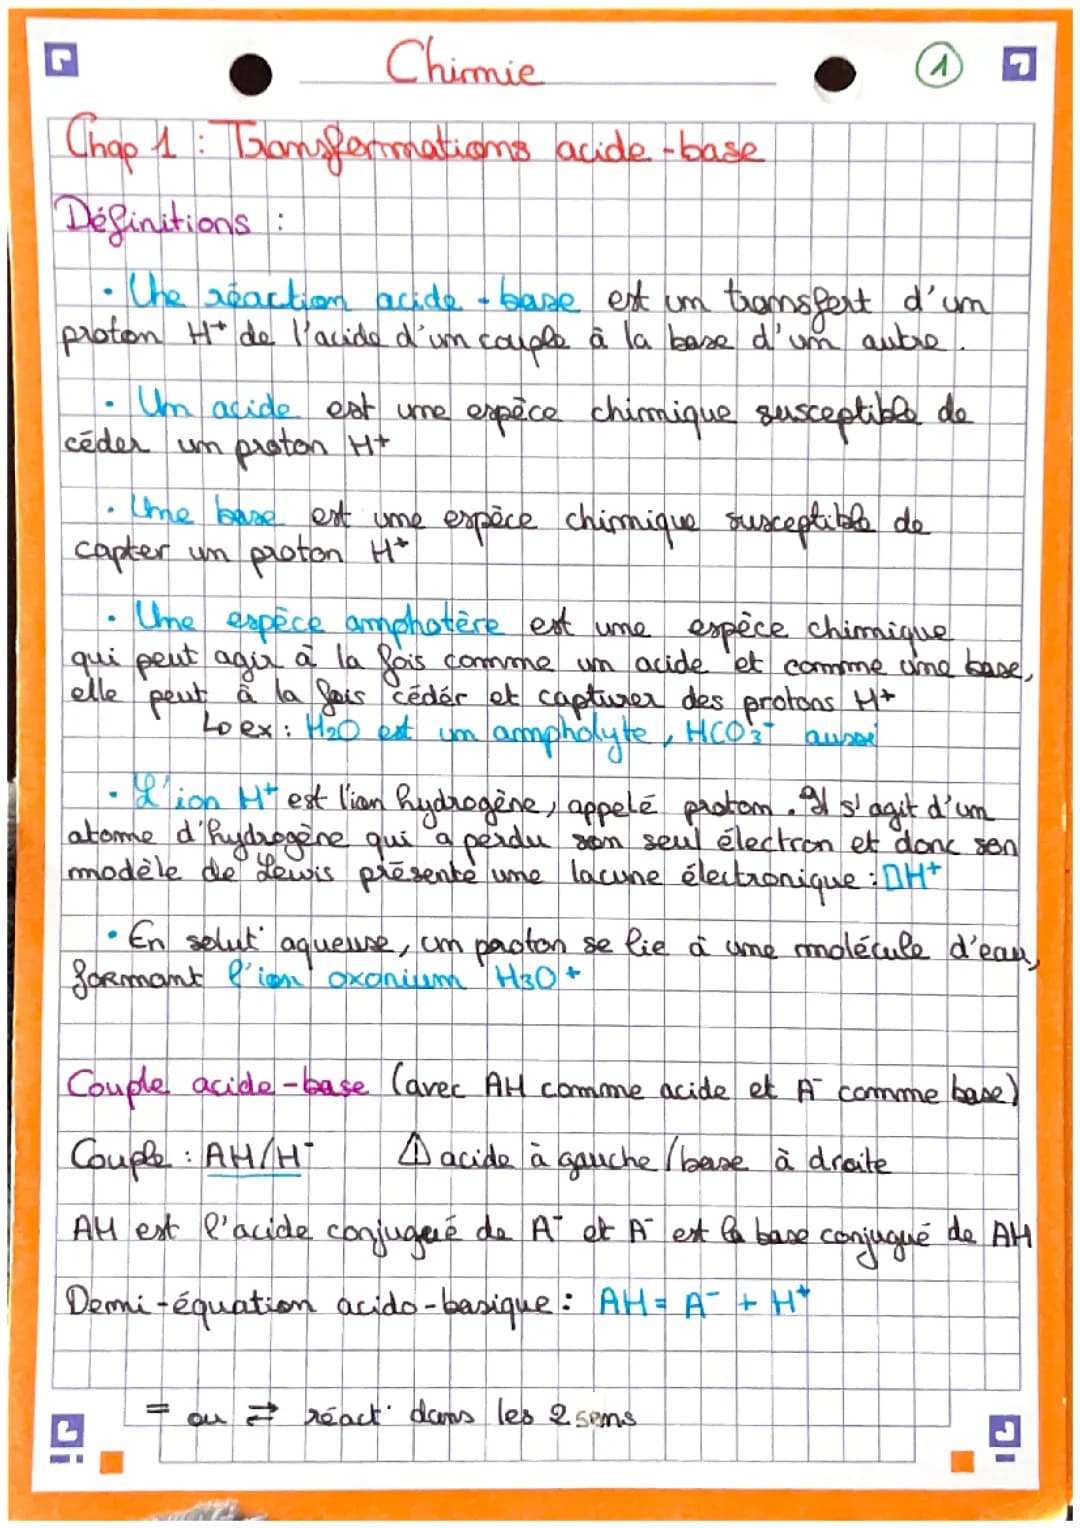 Chimie
1
Chap 1 : Transformations acide-base
Définitions :
• Une réaction acide-base est un transfert d'un
proton H+ de l'acide d'un couple à la base d'un autre.
• Un acide est une espèce chimique susceptible de
céder un proton H+
• Une base est une espèce chimique susceptible de
capter un proton H+
• Une espèce amphotère est une espèce chimique
qui peut agir à la fois comme un acide et comme une base,
elle peut à la fois cédér et capturer des protons H+
↳ ex : H2O est un ampholyte, HCO3- aussi
• L'ion H+ est l'ion hydrogène, appelé proton. Il s'agit d'un
atome d'hydrogène qui a perdu son seul électron et donc son
modèle de Lewis présente une lacune électronique : □H+
• En solut° aqueuse, un proton se lie à une molécule d'eau,
formant l'ion oxonium H3O+
Couple acide-base (avec AH comme acide et A- comme base)
Couple : AH/H- ⚠ acide à gauche / base à droite
AH est l'acide conjugué de A- et A- est la base conjugué de AH
Demi-équation acido-basique : AH = A- + H+
= ou ⇄ réact° dans les 2 sens